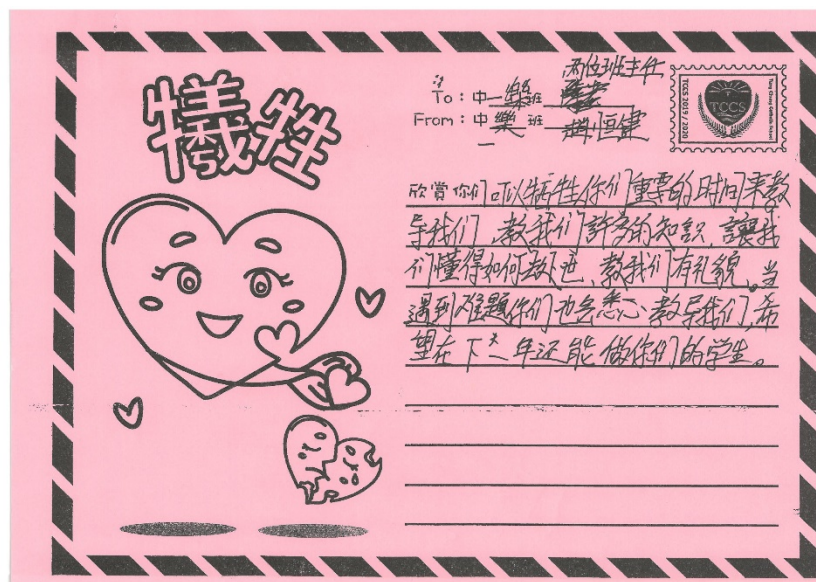 犧牲
两位班主任
To：中一樂班
From：中樂班 趙恒健
一
TCCS 2019/2020
TCCS
欣賞你们可以牺牲你们重要的时间来教
导我们，教我们許多的知識，讓我
们懂得如何處世，教我们有礼貌。当
遇到难題你们也会悉心教导我们，希
望在下一年还能做你们的学生。